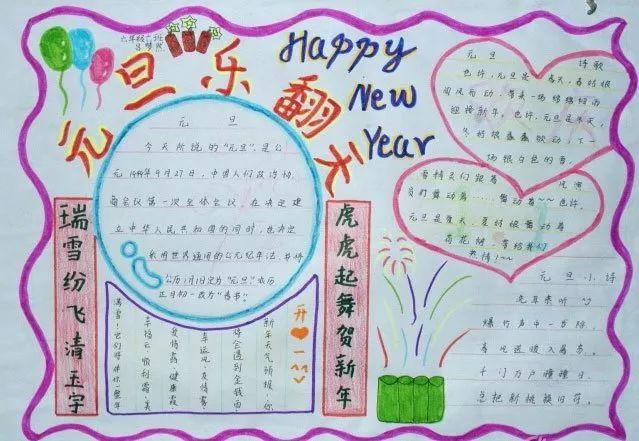 六年级六班
元旦乐翻天
Happy
New
Year
元 旦
今天所说的“元旦”,是公
元1949年9月27日,中国人们政治协
商会议第一次全体会议,在决定建
立中华人民共和国的同时,也决定
采用世界通用的公元纪年法,并将
公历1月1日定为“元旦”,农历
正月初一改为“春节”
瑞雪纷飞清玉宇
虎虎起舞贺新年
开❤一
新年天气预报:你
将会遇到金钱雨
幸运风、友情雾
爱情露、健康霞
幸福云、顺利霜、美
满雪!它们将伴你一整年
元旦 诗歌
也许,元旦是春天,春时娘
迎接新年。也许,元旦是冬天,
一场银白色的雪,
雪精灵们跟着
元旦是夏天,夏时娘舞动着
热情!~
元旦小诗
洗耳来听
爆竹声中一岁除,
春风送暖入屠苏。
千门万户曈曈日,
总把新桃换旧符。